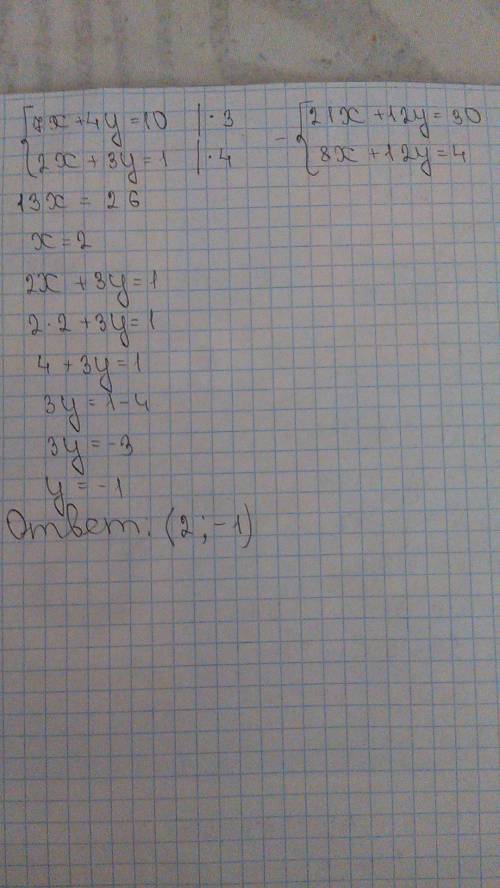 {7x+4y=10 |·3 - {21x+12y=30
{2x+3y=1 |·4 {8x+12y=4
13x = 26
x=2
2x+3y=1
2·2+3y=1
4+3y=1
3y=1-4
3y=-3
y=-1
Ответ. (2;-1)